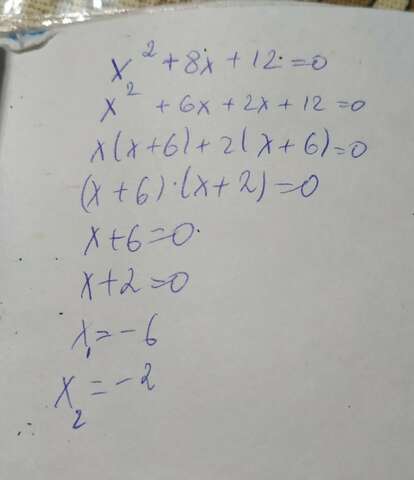 x² + 8x + 12 = 0
x² + 6x + 2x + 12 = 0
x(x+6) + 2(x+6) = 0
(x+6)·(x+2) = 0
x+6=0
x+2=0
x₁ = -6
x₂ = -2